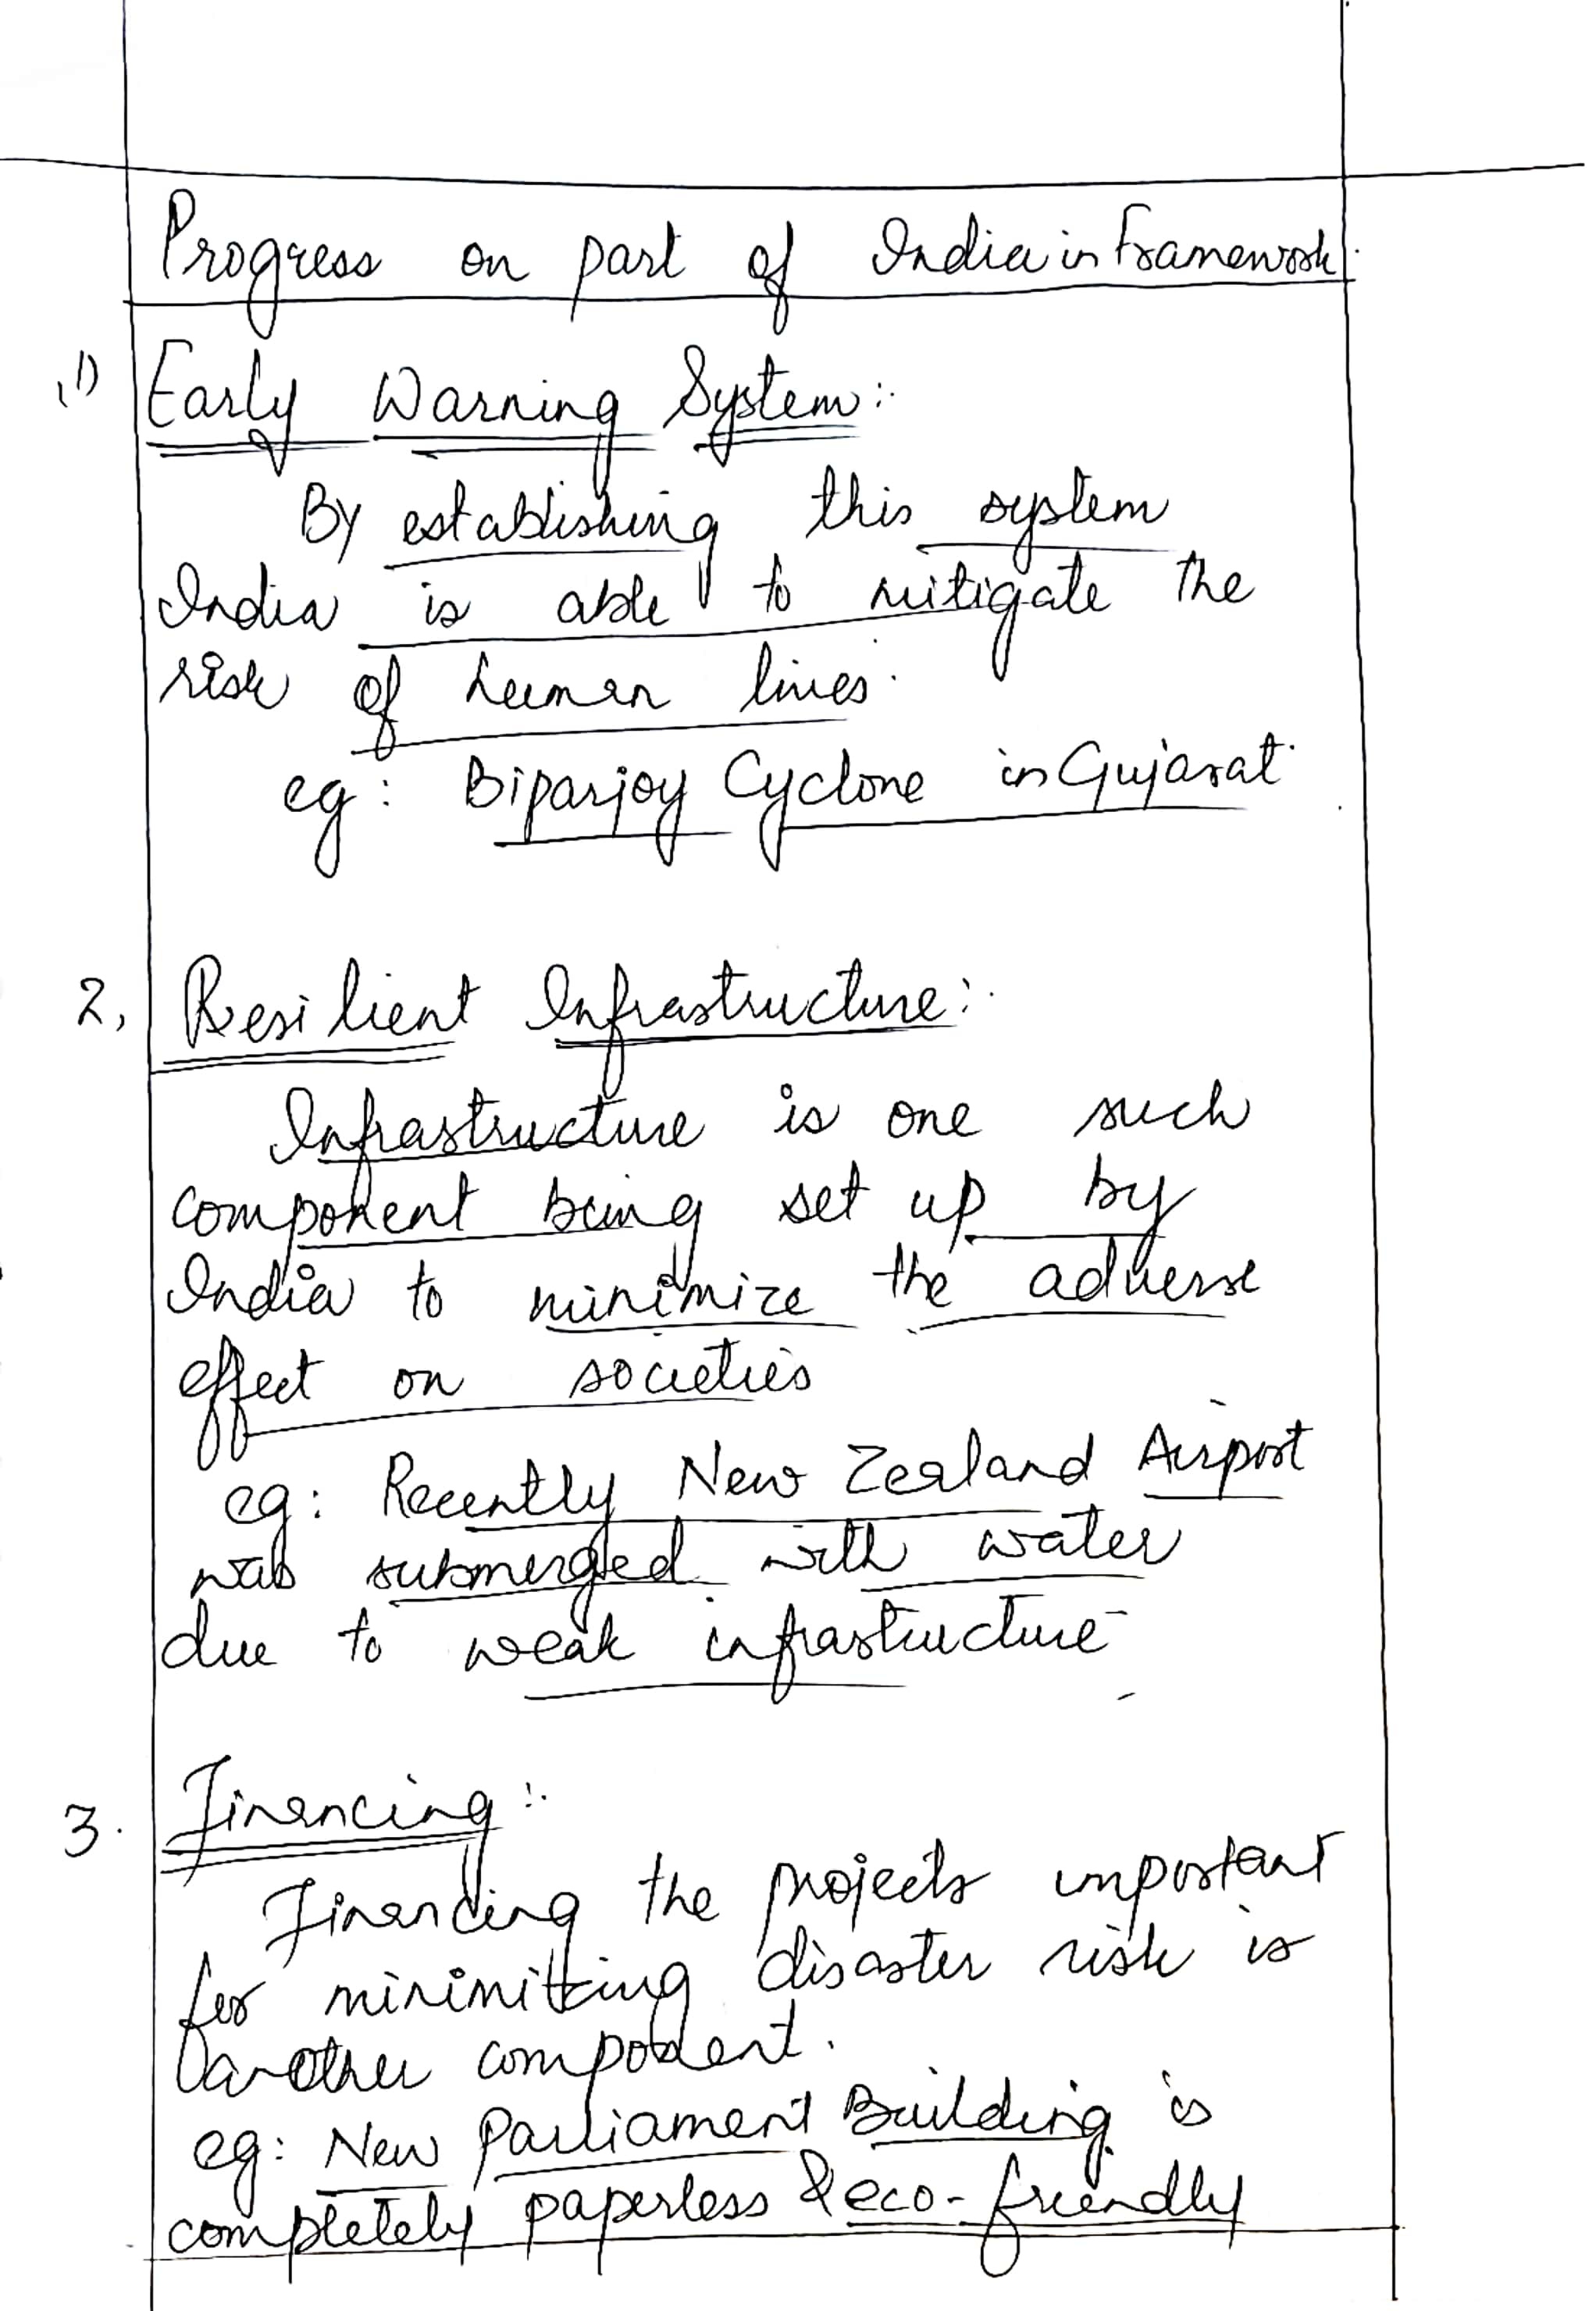 Progress on part of India in Framework.
1) Early Warning System:
By establishing this system
India is able to mitigate the
risk of human lives.
eg: Biparjoy Cyclone in Gujarat.
2, Resilient Infrastructure:
Infrastructure is one such
component being set up by
India to minimize the adverse
effect on societies
eg: Recently New Zealand Airport
was submerged with water
due to weak infrastructure
3. Financing:
Financing the projects important
for minimizing disaster risk is
another component.
eg: New Parliament Building is
completely paperless & eco-friendly